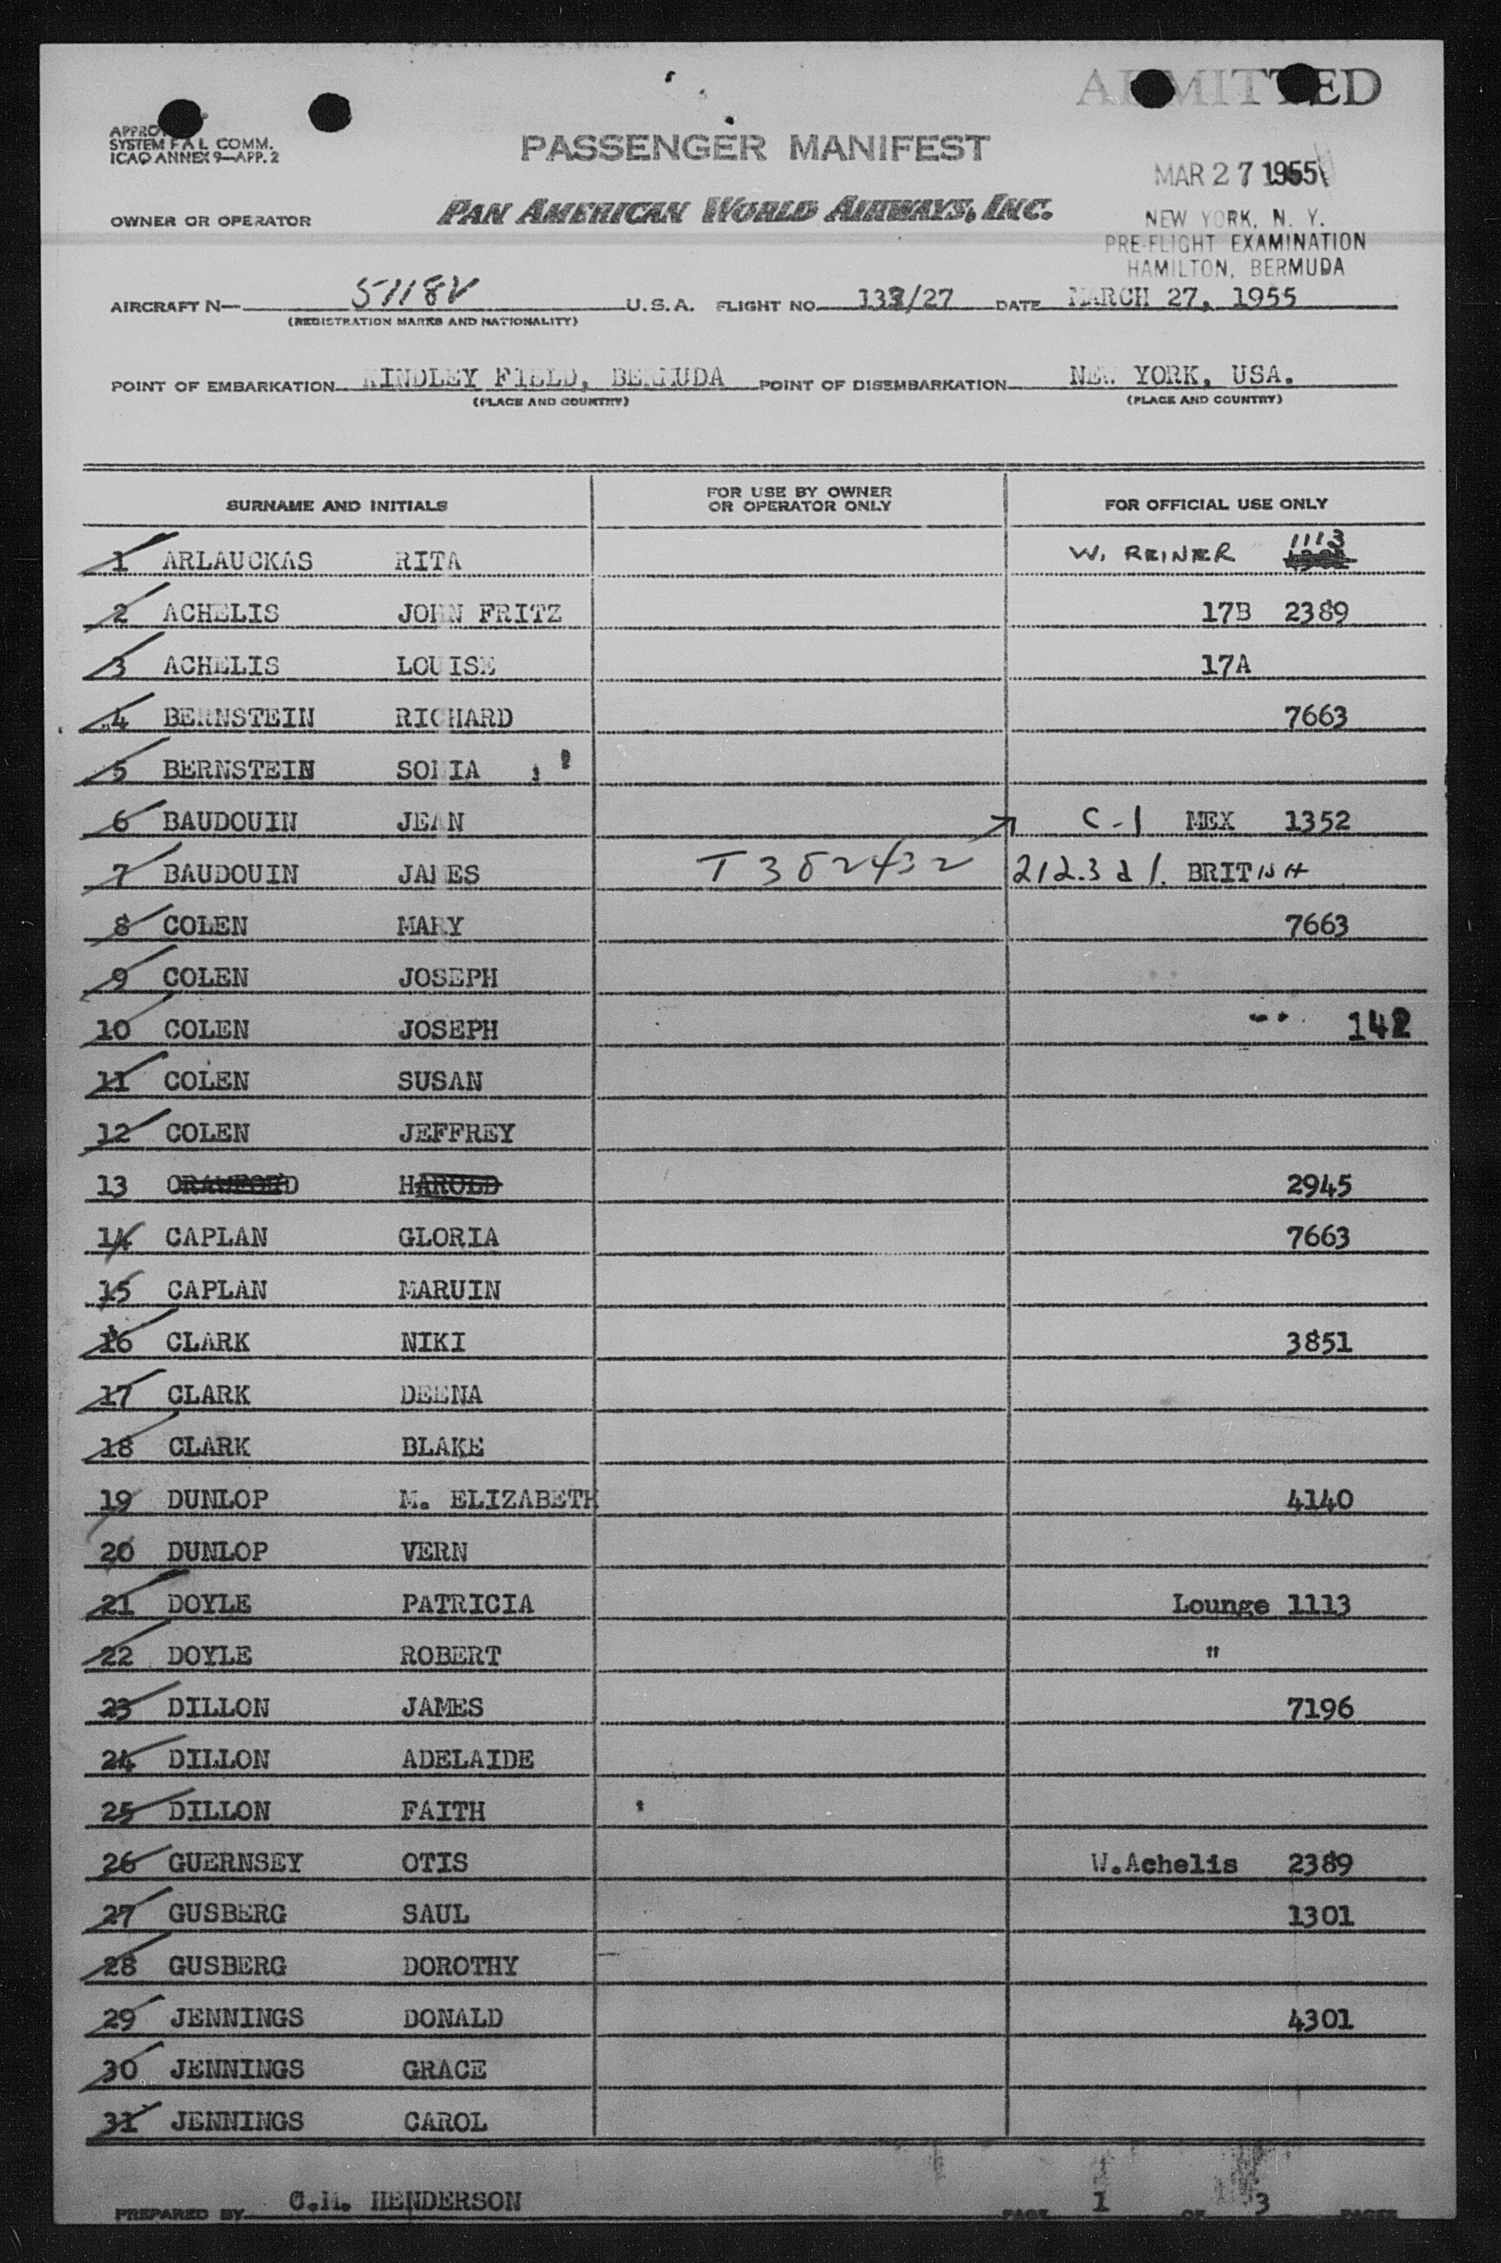 ADMITTED
APPROV
SYSTEM F A L COMM.
ICAO ANNEX 9—APP. 2
PASSENGER MANIFEST
MAR 27 1955
OWNER OR OPERATOR PAN AMERICAN WORLD AIRWAYS, INC.
NEW YORK, N. Y.
PRE-FLIGHT EXAMINATION
HAMILTON, BERMUDA
AIRCRAFT N— 5118V U.S.A. FLIGHT NO. /27 DATE MARCH 27, 1955
(REGISTRATION MARKS AND NATIONALITY)
POINT OF EMBARKATION KINDLEY FIELD, BERMUDA POINT OF DISEMBARKATION NEW YORK, USA.
(PLACE AND COUNTRY) (PLACE AND COUNTRY)
SURNAME AND INITIALS FOR USE BY OWNER OR OPERATOR ONLY FOR OFFICIAL USE ONLY
1 ARLAUCKAS RITA W. REINER 1113
2 ACHELIS JOHN FRITZ 17B 2389
3 ACHELIS LOUISE 17A
4 BERNSTEIN RICHARD 7663
5 BERNSTEIN SONIA
6 BAUDOUIN JEAN C-1 MEX 1352
7 BAUDOUIN JAMES T352432 212.3d1. BRITISH
8 COLEN MARY 7663
9 COLEN JOSEPH
10 COLEN JOSEPH 142
11 COLEN SUSAN
12 COLEN JEFFREY
13 CRAWFORD HAROLD 2945
14 CAPLAN GLORIA 7663
15 CAPLAN MARUIN
16 CLARK NIKI 3851
17 CLARK DEENA
18 CLARK BLAKE
19 DUNLOP M. ELIZABETH 4140
20 DUNLOP VERN
21 DOYLE PATRICIA Lounge 1113
22 DOYLE ROBERT "
23 DILLON JAMES 7196
24 DILLON ADELAIDE
25 DILLON FAITH
26 GUERNSEY OTIS W.Achelis 2389
27 GUSBERG SAUL 1301
28 GUSBERG DOROTHY
29 JENNINGS DONALD 4301
30 JENNINGS GRACE
31 JENNINGS CAROL
PREPARED BY HENDERSON PAGE 1 OF 3 PAGES